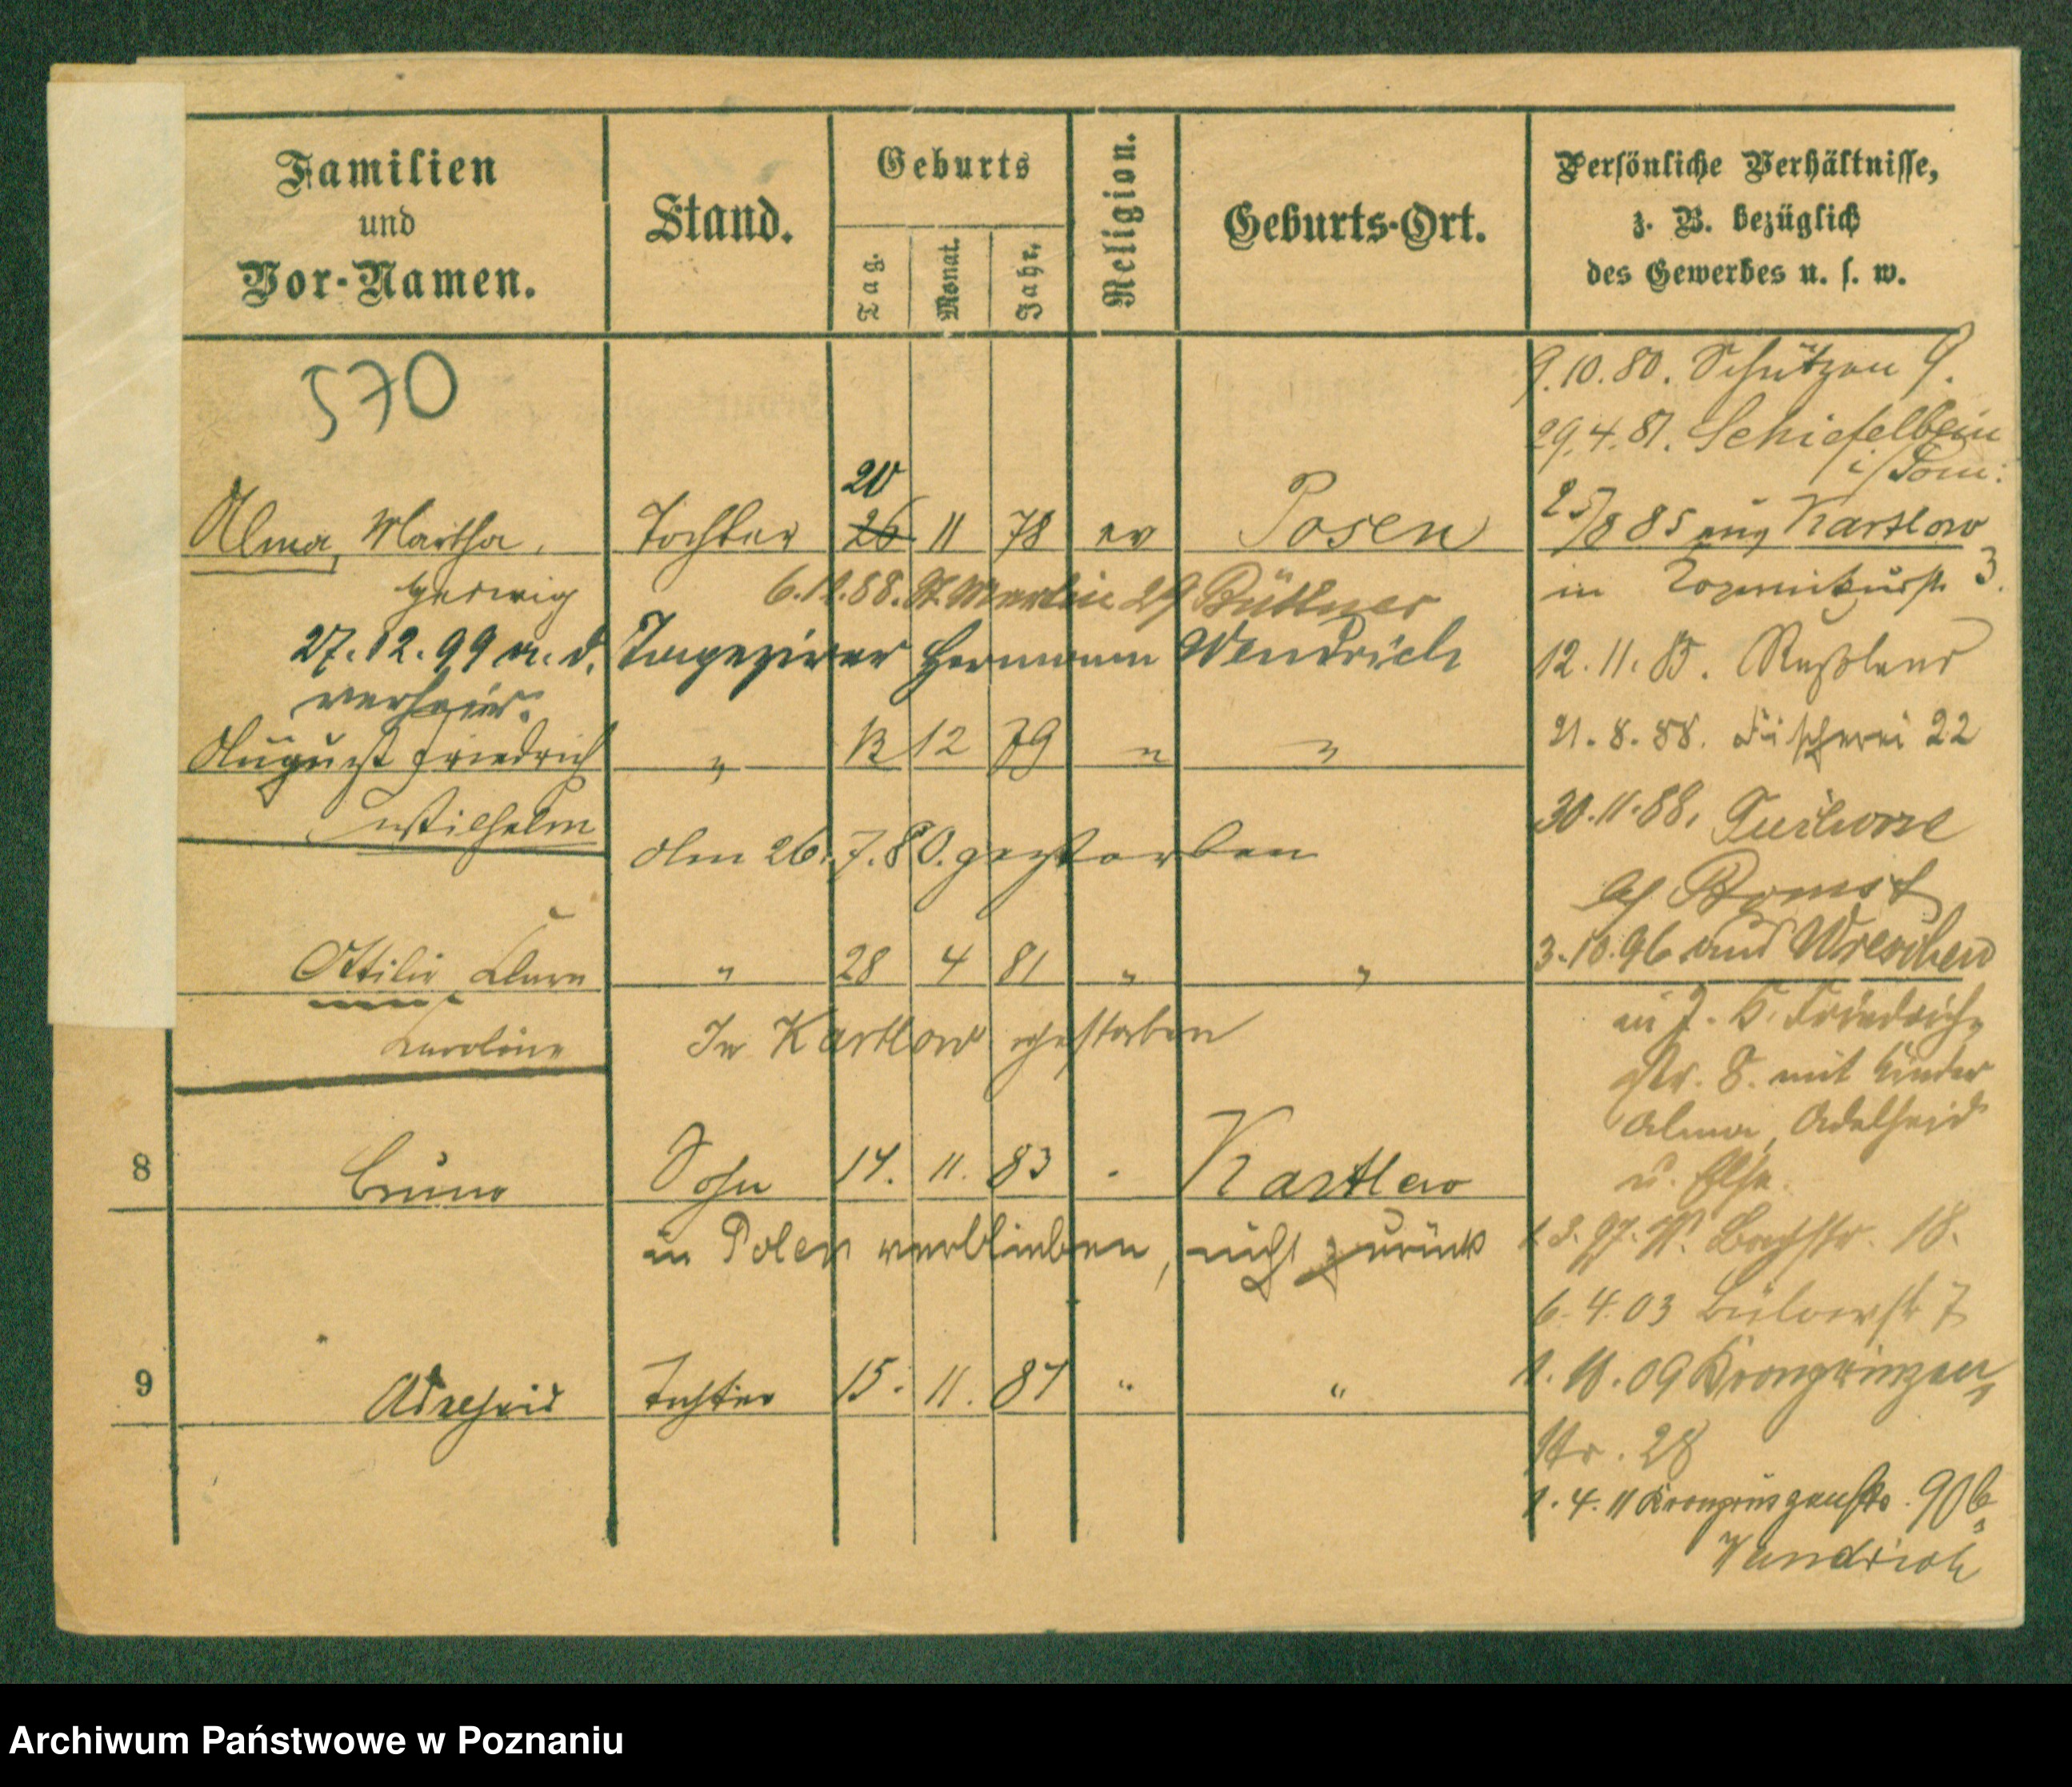 Familien
und
Vor-Namen.
Stand.
Geburts
Tag.
Monat.
Jahr.
Religion.
Geburts-Ort.
Persönliche Verhältnisse,
z. B. bezüglich
des Gewerbes u. s. w.
570
Alma, Martha, Tochter 20 26 11 78 ev Posen
Hedwig
6.11.88. St. Martin 29 Büttner
27.12.99 m. d. Tapezirer Hermann Wendrich
verheir.
August Friedrich " 12 79 " "
Wilhelm
Am 26.7.80. gestorben
Ottilie Clara " 28 4 81 " "
Karoline
In Kartlow gestorben
8 Bruno Sohn 14. 11. 83 Kartlow
in Polen verblieben, nicht zurück
9 Adelheid Tochter 15. 11. 87 " "
9.10.80. Schützen 9.
29.4.81. Schiefelbein
i/Pom:
25/8 85 aus Kartlow
in 3.
12.11.85. Rußland
21.8.88. Fischerei 22
30.11.88.
b/ Bomst
3.10.96 aus Wreschen
in J. K. Friedrich
str. 8. mit Kinder
Alma, Adelheid
u. Else.
1.3.97. W. Bachstr. 18.
6.4.03 Bülowstr 7
1.11.09 Kronprinzen
str. 28
1.4.11 Kronprinzenstr. 90b
Wendrich
Archiwum Państwowe w Poznaniu